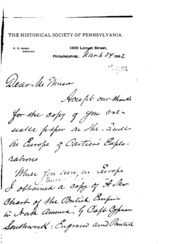 THE HISTORICAL SOCIETY OF PENNSYLVANIA.
1300 Locust Street,
Philadelphia, March 24 1892
Dear Mr Winsor
Accept our thanks
for the copy of your val-
uable paper on the
in Europe of Cartier's Explo-
rations
When you were in Europe
I obtained a copy of A New
Chart of the British Empire
in North America, by Capt
Southwick; Engraved and Printed